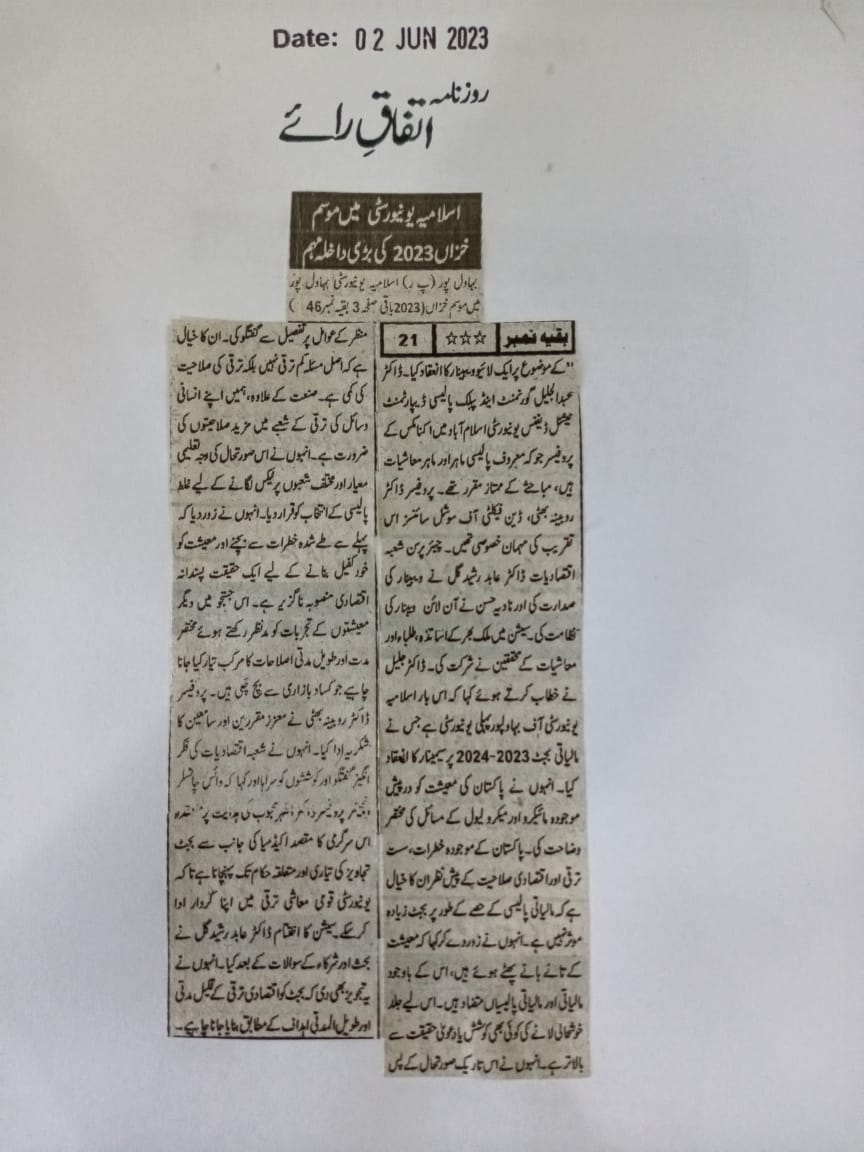 Date: 02 JUN 2023
روزنامہ
اتفاقِ رائے
اسلامیہ یونیورسٹی میں موسم
خزاں 2023 کی بڑی داخلہ مہم
بہاول پور (پ ر) اسلامیہ یونیورسٹی بہاول پور
میں موسم خزاں (2023 باقی صفحہ 3 بقیہ نمبر 46)
بقیہ نمبر ☆☆☆ 21
"کے موضوع پر ایک لائیو ویبینار کا انعقاد کیا۔ ڈاکٹر
عبدالجلیل گورنمنٹ اینڈ پبلک پالیسی ڈیپارٹمنٹ
نیشنل ڈیفنس یونیورسٹی اسلام آباد میں اکنامکس کے
پروفیسر جو کہ معروف پالیسی ماہر اور ماہر معاشیات
ہیں، مباحثے کے ممتاز مقرر تھے۔ پروفیسر ڈاکٹر
روبینہ بھٹی، ڈین فیکلٹی آف سوشل سائنسز اس
تقریب کی مہمان خصوصی تھیں۔ چیئرپرسن شعبہ
اقتصادیات ڈاکٹر عابد رشید گل نے ویبینار کی
صدارت کی اور نادیہ حسن نے آن لائن ویبنار کی
نظامت کی۔ سیشن میں ملک بھر کے اساتذہ، طلباء اور
معاشیات کے محققین نے شرکت کی۔ ڈاکٹر جلیل
نے خطاب کرتے ہوئے کہا کہ اس بار اسلامیہ
یونیورسٹی آف بہاولپور پہلی یونیورسٹی ہے جس نے
مالیاتی بجٹ 2023-2024 پر سیمینار کا انعقاد
کیا۔ انہوں نے پاکستان کی معیشت کو درپیش
موجودہ مائیکرو اور میکرو لیول کے مسائل کی مختصر
وضاحت کی۔ پاکستان کے موجودہ خطرات، ست
ترقی اور اقتصادی صلاحیت کے پیش نظر ان کا خیال
ہے کہ مالیاتی پالیسی کے حصے کے طور پر بجٹ زیادہ
موثر نہیں ہے۔ انہوں نے زور دے کر کہا کہ معیشت
کے تانے بانے پھٹے ہوئے ہیں، اس کے باوجود
مالیاتی اور مالیاتی پالیسیاں متضاد ہیں۔ اس لیے جلد
خوشحالی لانے کی کوئی بھی کوشش یا دعویٰ حقیقت سے
بالاتر ہے۔ انہوں نے اس تاریک صورتحال کے پس
منظر کے عوامل پر تفصیل سے گفتگو کی۔ ان کا خیال
ہے کہ اصل مسئلہ کم ترقی نہیں بلکہ ترقی کی صلاحیت
کی کمی ہے۔ صنعت کے علاوہ، ہمیں اپنے انسانی
وسائل کی ترقی کے شعبے میں مزید صلاحیتوں کی
ضرورت ہے۔ انہوں نے اس صورتحال کی وجہ تعلیمی
معیار اور مختلف شعبوں پر ٹیکس لگانے کے لیے غلط
پالیسی کے انتخاب کو قرار دیا۔ انہوں نے زور دیا کہ
پہلے سے طے شدہ خطرات سے بچنے اور معیشت کو
خود کفیل بنانے کے لیے ایک حقیقت پسندانہ
اقتصادی منصوبہ ناگزیر ہے۔ اس جستجو میں دیگر
معیشتوں کے تجربات کو مدنظر رکھتے ہوئے مختصر
مدت اور طویل مدتی اصلاحات کا مرکب تیار کیا جانا
چاہیے جو کساد بازاری سے بچ چکی ہیں۔ پروفیسر
ڈاکٹر روبینہ بھٹی نے معزز مقررین اور سامعین کا
شکریہ ادا کیا۔ انہوں نے شعبہ اقتصادیات کی فکر
انگیز گفتگو اور کوششوں کو سراہا اور کہا کہ وائس چانسلر
انجینئر پروفیسر ڈاکٹر اطہر محبوب کی ہدایت پر منعقدہ
اس سرگرمی کا مقصد اکیڈمیا کی جانب سے بجٹ
تجاویز کی تیاری اور متعلقہ حکام تک پہنچانا ہے تاکہ
یونیورسٹی قومی معاشی ترقی میں اپنا کردار ادا
کر سکے۔ سیشن کا اختتام ڈاکٹر عابد رشید گل نے
بحث اور شرکاء کے سوالات کے بعد کیا۔ انہوں نے
یہ تجویز بھی دی کہ بجٹ کو اقتصادی ترقی کے قلیل مدتی
اور طویل المدتی اہداف کے مطابق بنایا جانا چاہیے۔